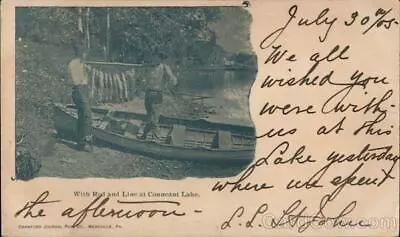 July 30 '05
We all
wished you
were with
us at this
Lake yesterday
where we spent
the afternoon -
L. L. St. John
With Rod and Line at Conneaut Lake.
CRAWFORD JOURNAL PTG. CO. MEADVILLE, PA.